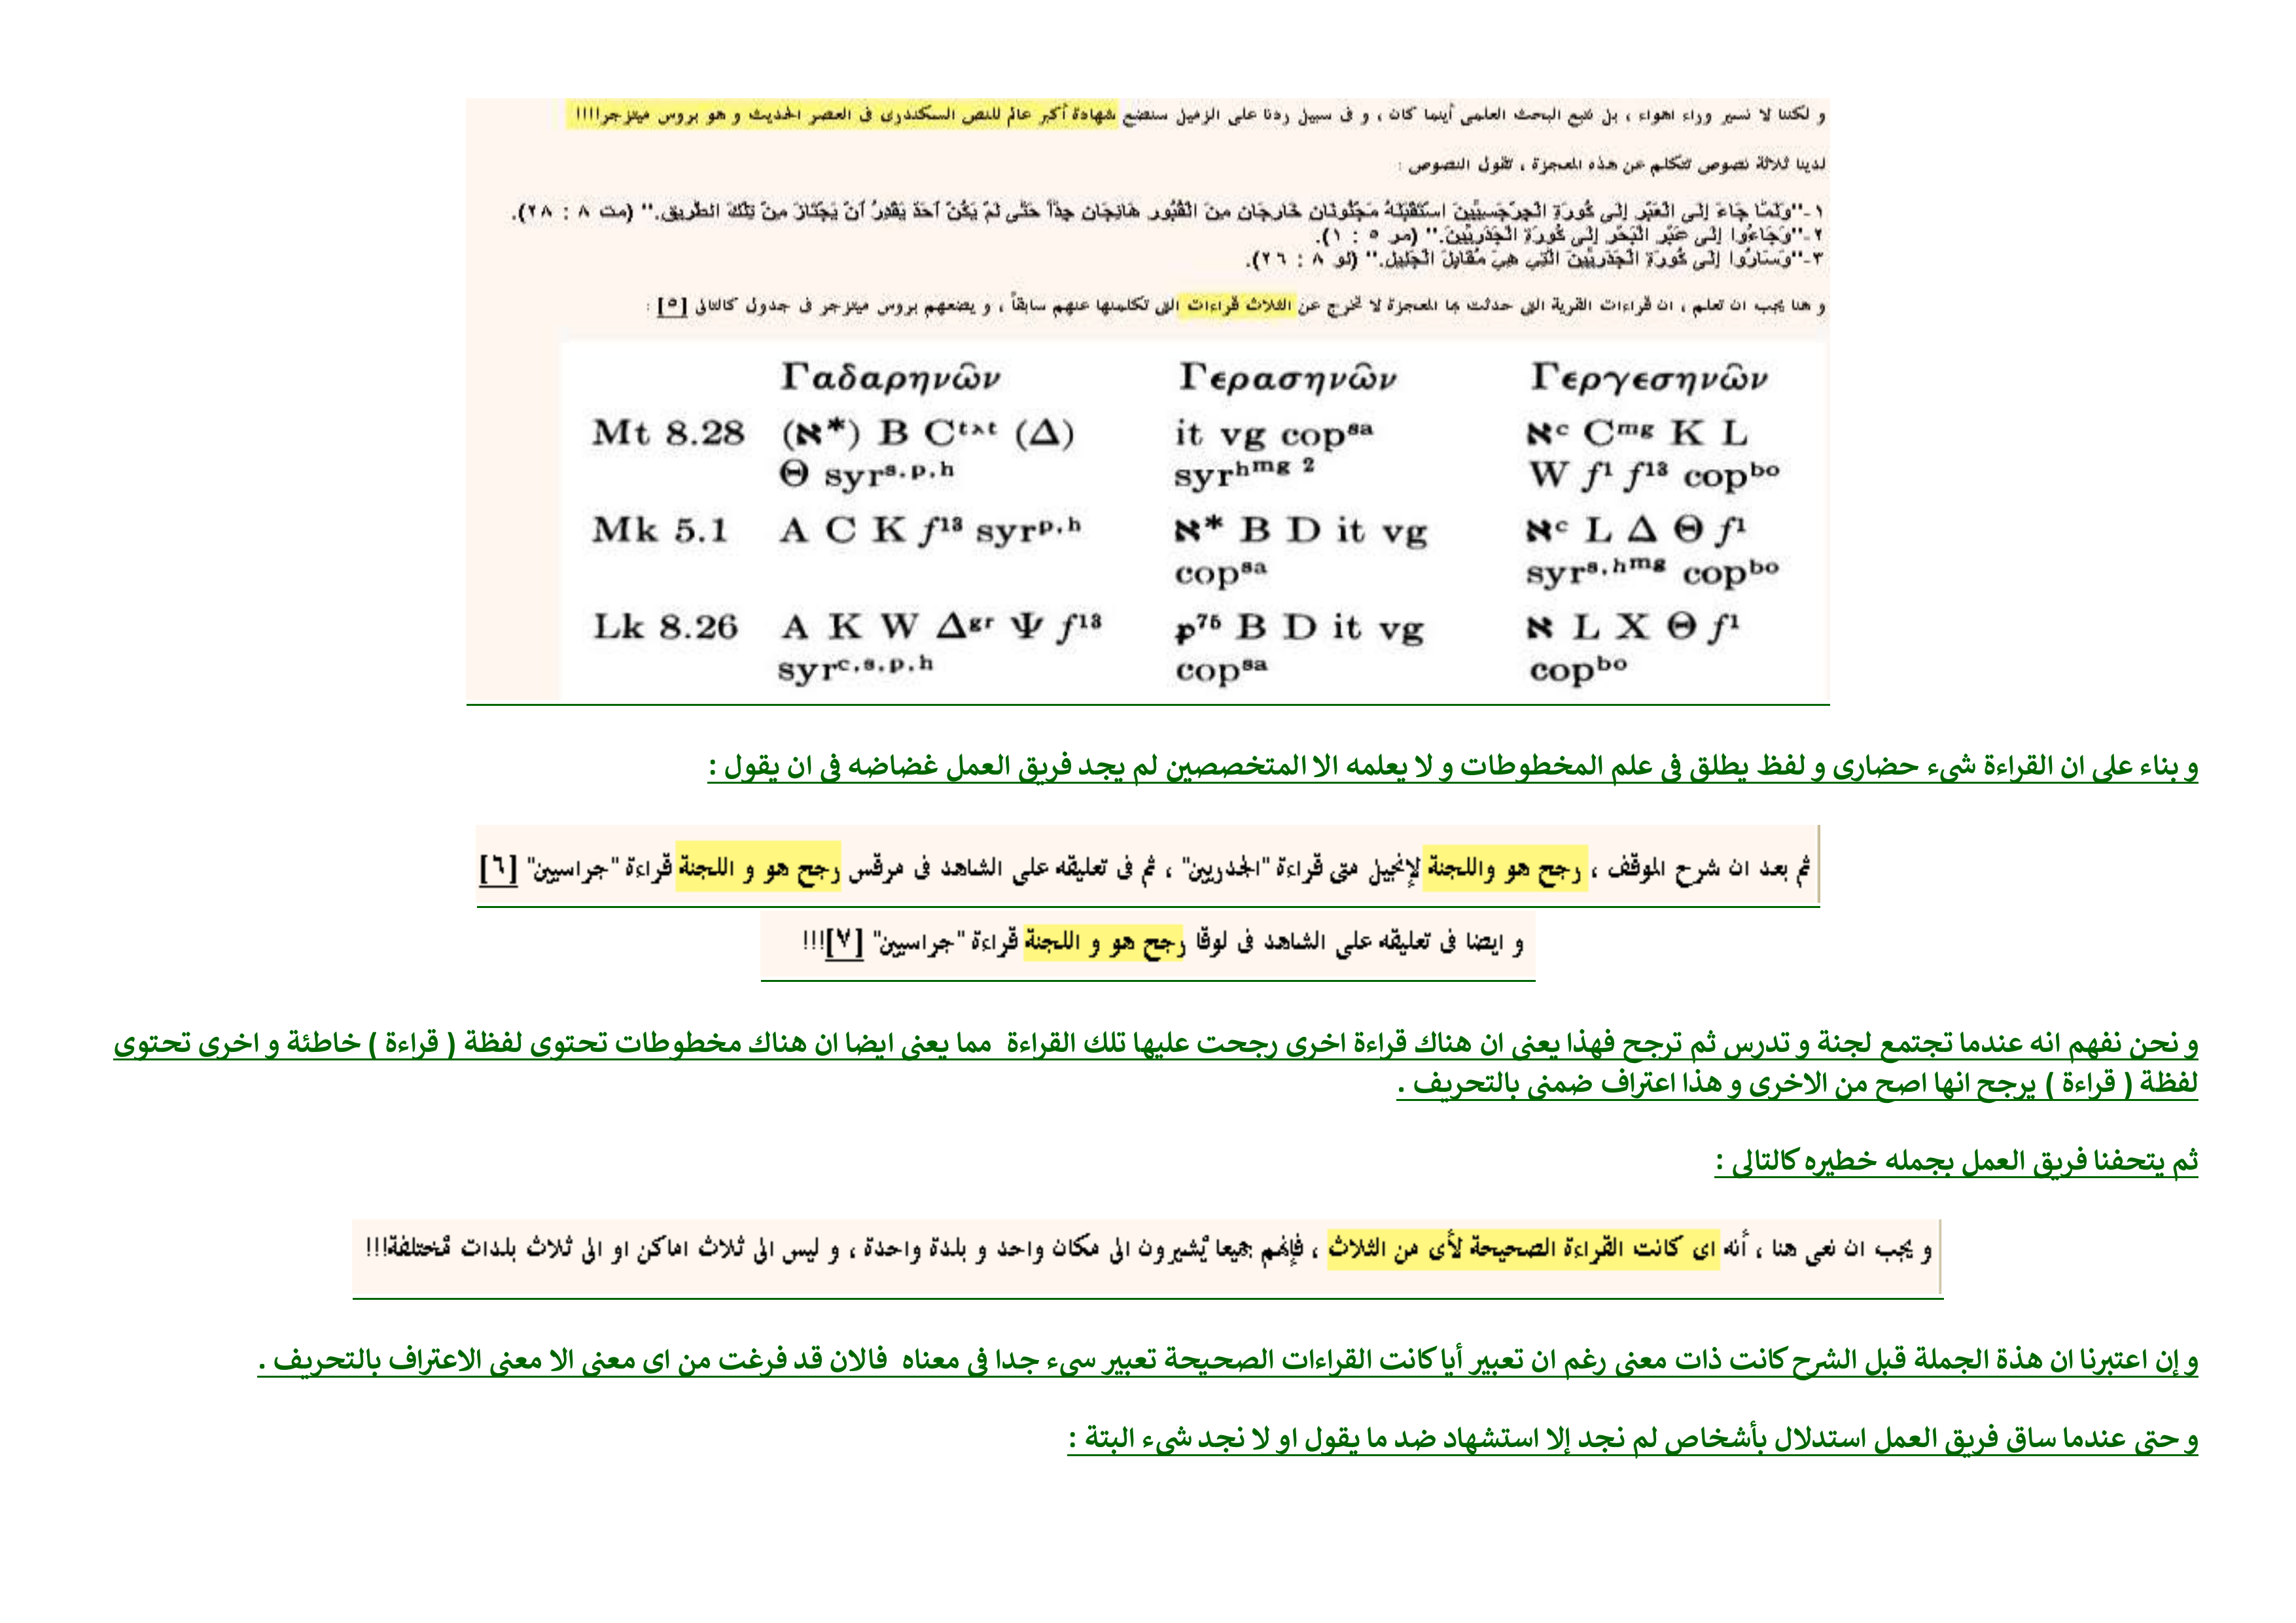 و لكننا لا نسير وراء اهواء ، بل نتبع البحث العلمى أينما كان ، و فى سبيل ردنا على الزميل سنضع شهادة أكبر عالم للنص السكندرى فى العصر الحديث و هو بروس ميتزجر!!!!
لدينا ثلاثة نصوص تتكلم عن هذه المعجزة ، تقول النصوص :
١-"وَلَمَّا جَاءَ إِلَى الْعَبْرِ إِلَى كُورَةِ الْجِرْجَسِيِّينَ اسْتَقْبَلَهُ مَجْنُونَانِ خَارِجَانِ مِنَ الْقُبُورِ هَائِجَانِ جِدّاً حَتَّى لَمْ يَكُنْ أَحَدٌ يَقْدِرُ أَنْ يَجْتَازَ مِنْ تِلْكَ الطَّرِيقِ." (مت ٨ : ٢٨).
٢-"وَجَاءُوا إِلَى عَبْرِ الْبَحْرِ إِلَى كُورَةِ الْجَدَرِيِّينَ." (مر ٥ : ١).
٣-"وَسَارُوا إِلَى كُورَةِ الْجَدَرِيِّينَ الَّتِي هِيَ مُقَابِلَ الْجَلِيلِ." (لو ٨ : ٢٦).
و هنا يجب ان تعلم ، ان قراءات القرية التى حدثت بها المعجزة لا تخرج عن الثلاث قراءات التى تكلمنها عنهم سابقاً ، و يضعهم بروس ميتزجر فى جدول كالتالى [٥] :
Γαδαρηνῶν Γερασηνῶν Γεργεσηνῶν
Mt 8.28 (א*) B Cᵗˣᵗ (Δ) it vg copˢᵃ אᶜ Cᵐᵍ K L
Θ syrˢ·ᵖ·ʰ syrʰᵐᵍ ² W f¹ f¹³ copᵇᵒ
Mk 5.1 A C K f¹³ syrᵖ·ʰ א* B D it vg אᶜ L Δ Θ f¹
copˢᵃ syrˢ·ʰᵐᵍ copᵇᵒ
Lk 8.26 A K W Δᵍʳ Ψ f¹³ p⁷⁵ B D it vg א L X Θ f¹
syrᶜ·ˢ·ᵖ·ʰ copˢᵃ copᵇᵒ
و بناء على ان القراءة شىء حضارى و لفظ يطلق فى علم المخطوطات و لا يعلمه الا المتخصصين لم يجد فريق العمل غضاضه فى ان يقول :
ثم بعد ان شرح الموقف ، رجح هو واللجنة لإنجيل متى قراءة "الجدريين" ، ثم فى تعليقه على الشاهد فى مرقس رجح هو و اللجنة قراءة "جراسيين" [٦]
و ايضا فى تعليقه على الشاهد فى لوقا رجح هو و اللجنة قراءة "جراسيين" [٧]!!!
و نحن نفهم انه عندما تجتمع لجنة و تدرس ثم ترجح فهذا يعنى ان هناك قراءة اخرى رجحت عليها تلك القراءة مما يعنى ايضا ان هناك مخطوطات تحتوى لفظة ( قراءة ) خاطئة و اخرى تحتوى
لفظة ( قراءة ) يرجح انها اصح من الاخرى و هذا اعتراف ضمنى بالتحريف .
ثم يتحفنا فريق العمل بجمله خطيره كالتالى :
و يجب ان نعى هنا ، أنه اى كانت القراءة الصحيحة لأى من الثلاث ، فإنهم جميعا يُشيرون الى مكان واحد و بلدة واحدة ، و ليس الى ثلاث اماكن او الى ثلاث بلدات مُختلفة!!!
و إن اعتبرنا ان هذة الجملة قبل الشرح كانت ذات معنى رغم ان تعبير أيا كانت القراءات الصحيحة تعبير سىء جدا فى معناه فالان قد فرغت من اى معنى الا معنى الاعتراف بالتحريف .
و حتى عندما ساق فريق العمل استدلال بأشخاص لم نجد إلا استشهاد ضد ما يقول او لا نجد شىء البتة :